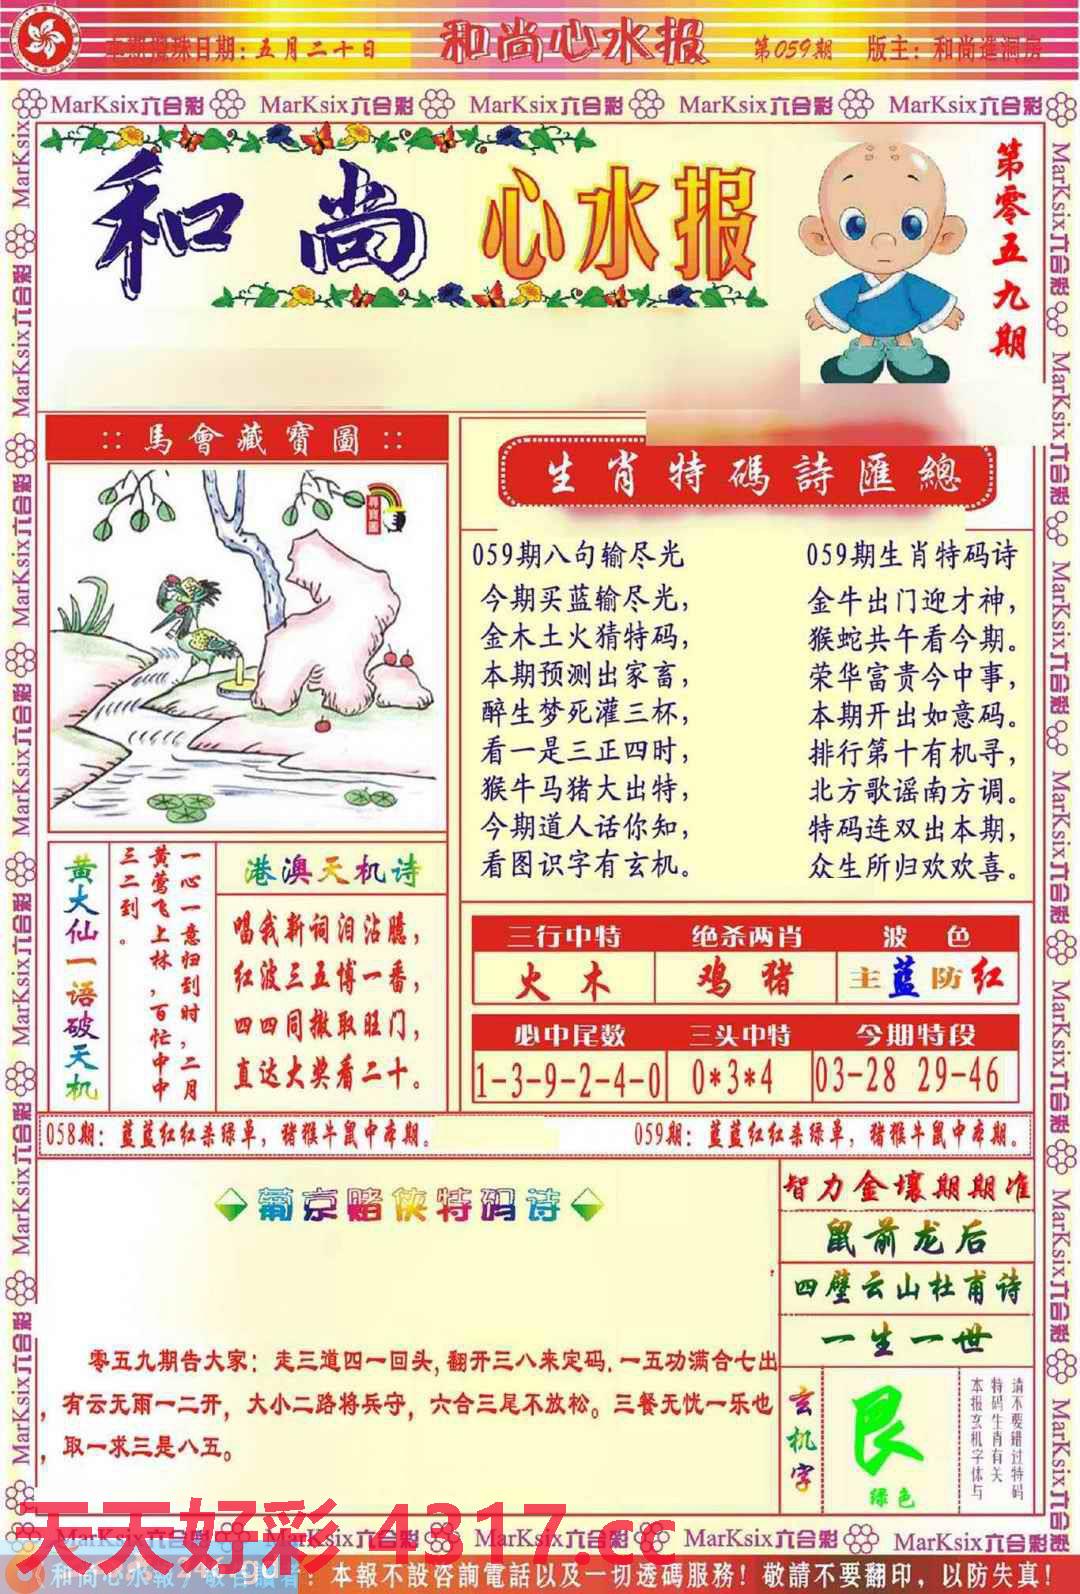 本期搅珠日期:五月二十日
和尚心水报
第059期
版主:和尚進洞房
MarKsix六合彩 MarKsix六合彩 MarKsix六合彩 MarKsix六合彩 MarKsix六合彩
和尚心水报
第零五九期
::馬會藏寶圖::
生肖特碼詩匯總
059期八句输尽光
今期买蓝输尽光,
金木土火猜特码,
本期预测出家畜,
醉生梦死灌三杯,
看一是三正四时,
猴牛马猪大出特,
今期道人话你知,
看图识字有玄机。
059期生肖特码诗
金牛出门迎才神,
猴蛇共午看今期。
荣华富贵今中事,
本期开出如意码。
排行第十有机寻,
北方歌谣南方调。
特码连双出本期,
众生所归欢欢喜。
黄大仙一语破天机
一心一意归到时,二月
黄莺飞上林,百忙中中
三二到。
港澳天机诗
唱我新词泪沾臆,
红波三五博一番,
四四同撤取旺门,
直达大奖看二十。
三行中特 绝杀两肖 波色
火木 鸡猪 主蓝防红
必中尾数 三头中特 今期特段
1-3-9-2-4-0 0*3*4 03-28 29-46
058期:蓝蓝红红杀绿单,猪猴牛鼠中本期。
059期:蓝蓝红红杀绿单,猪猴牛鼠中本期。
葡京赌侠特码诗
零五九期告大家:走三道四一回头,翻开三八来定码.一五功满合七出
,有云无雨一二开,大小二路将兵守,六合三尾不放松。三餐无忧一乐也
,取一求三是八五。
智力金壤期期准
鼠前龙后
四壁云山杜甫诗
一生一世
玄机字
艮
绿色
请不要错过特码
特码生肖有关
本报玄机字体与
天天好彩 4317.cc
MarKsix六合彩 MarKsix六合彩 MarKsix六合彩 MarKsix六合彩 MarKsix六合彩
和尚心水報
:本報不設咨詢電話以及一切透碼服務!敬請不要翻印,以防失真!